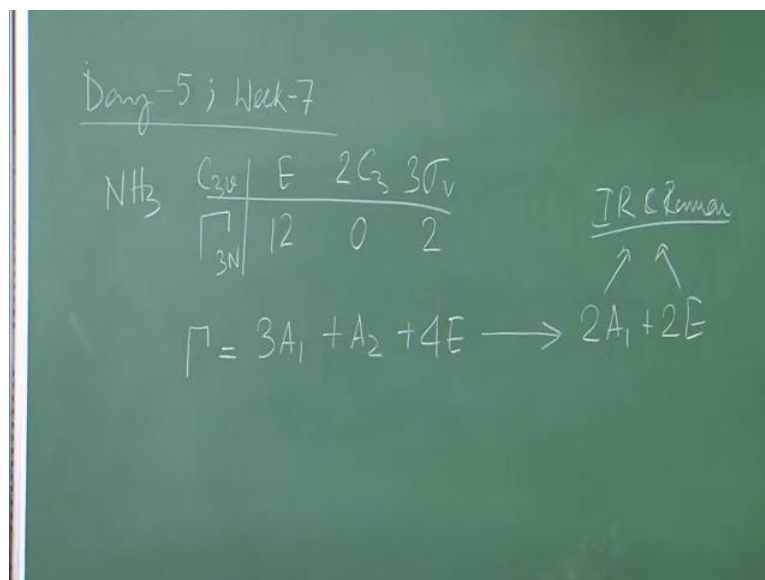 Day-5; Week-7
NH₃ C₃ᵥ E 2C₃ 3σᵥ
Γ₃N 12 0 2
IR & Raman
Γ = 3A₁ + A₂ + 4E ⟶ 2A₁ + 2E